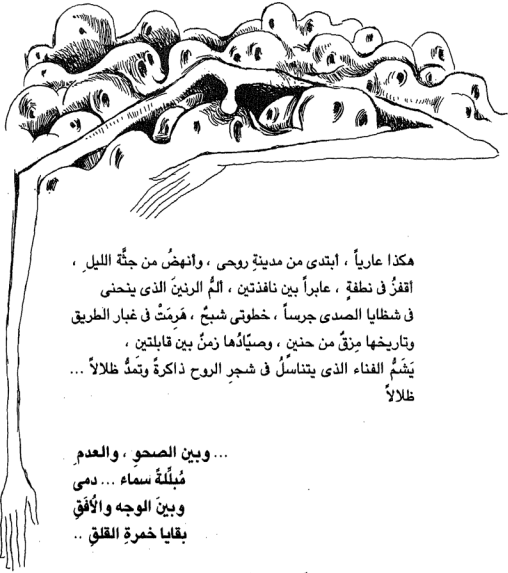 هكذا عارياً ، أبتدى من مدينةِ روحى ، وأنهضُ من جثَّة الليلِ ،
أقفزُ فى نطفةٍ ، عابراً بين نافذتين ، ألمُّ الرنينَ الذى ينحنى
فى شظايا الصدى جرساً ، خطوتى شبحٌ ، هَرِمَتْ فى غبار الطريق
وتاريخها مِزقٌ من حنينٍ ، وصيّادُها زمنٌ بين قابلتين ،
يَشَمُّ الفناء الذى يتناسلُ فى شجرِ الروح ذاكرةً وتَمدُّ ظلالاً ...
ظلالاً
... وبين الصحوِ ، والعدمِ
مُبلِّلةً سماء ... دمى
وبينَ الوجه والأُفَقِ
بقايا خمرةِ القلقِ ..